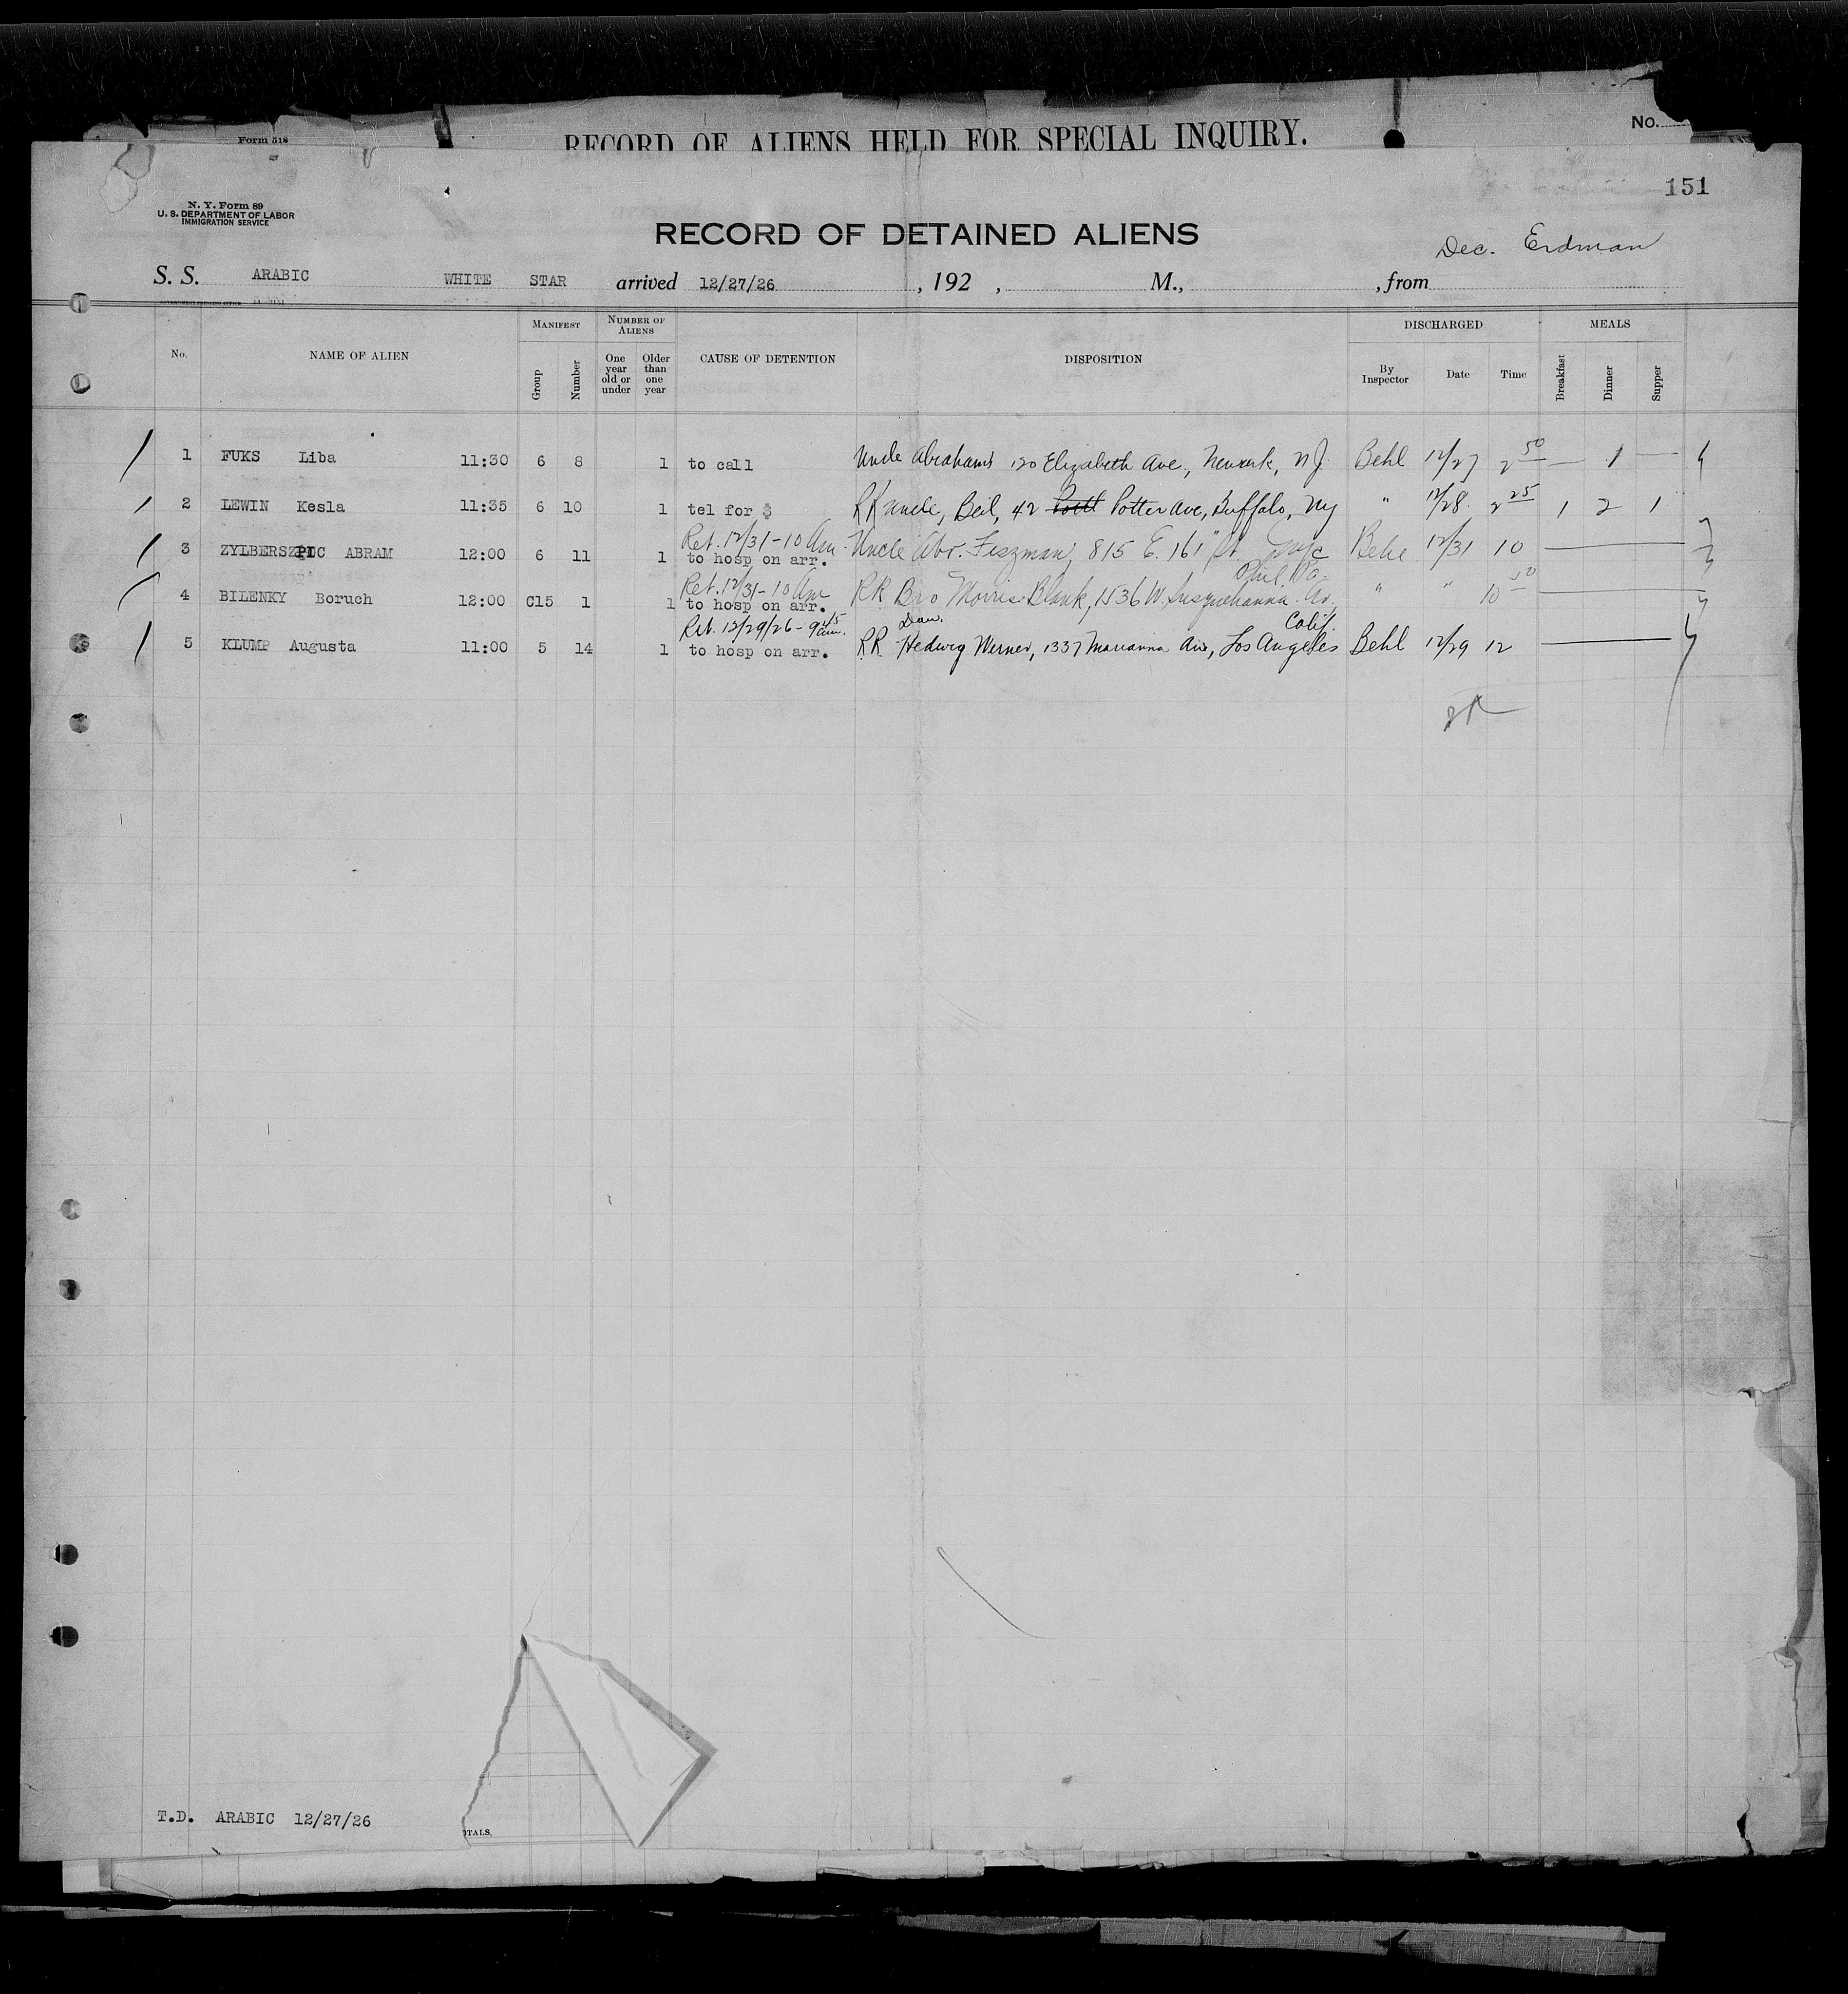 Form 518
RECORD OF ALIENS HELD FOR SPECIAL INQUIRY.
No.
151
N. Y. Form 89
U. S. DEPARTMENT OF LABOR
IMMIGRATION SERVICE
RECORD OF DETAINED ALIENS
Dec. Erdman
S. S. ARABIC WHITE STAR arrived 12/27/26, 192 , M., , from
No. NAME OF ALIEN MANIFEST Group Number NUMBER OF ALIENS One year old or under Older than one year CAUSE OF DETENTION DISPOSITION DISCHARGED By Inspector Date Time MEALS Breakfast Dinner Supper
1 FUKS Liba 11:30 6 8 1 to call Uncle Abrahams 120 Elizabeth Ave, Newark, N.J. Behl 12/27 2 50 — 1 —
2 LEWIN Kesla 11:35 6 10 1 tel for $ RR uncle, Beil, 42 Potter Ave, Buffalo, Ny " 12/28 2 25 1 2 1
Ret. 12/31 - 10 Am.
3 ZYLBERSZPIC ABRAM 12:00 6 11 1 to hosp on arr. Uncle Abr. Fiszman, 815 E. 161" St. NYC Behl 12/31 10
Ret. 12/31 - 10 Am Phil. Pa.
4 BILENKY Boruch 12:00 C15 1 1 to hosp on arr. RR Bro Morris Blank, 1536 W. Susquehanna Av. " " 10 50
Ret. 12/29/26 - 9 45 am. Dau. Calif.
5 KLUMP Augusta 11:00 5 14 1 to hosp on arr. RR Hedwig Werner, 1337 Marianna Ave, Los Angeles Behl 12/29 12
T.D. ARABIC 12/27/26
OTALS,